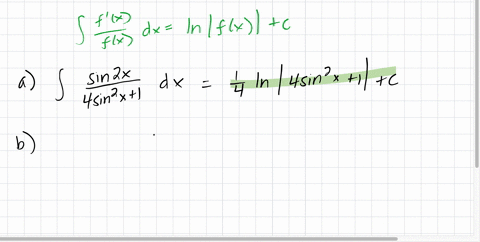 ∫ f'(x)/f(x) dx = ln|f(x)| + c
a) ∫ sin2x/(4sin²x+1) dx = 1/4 ln|4sin²x+1| + c
b)